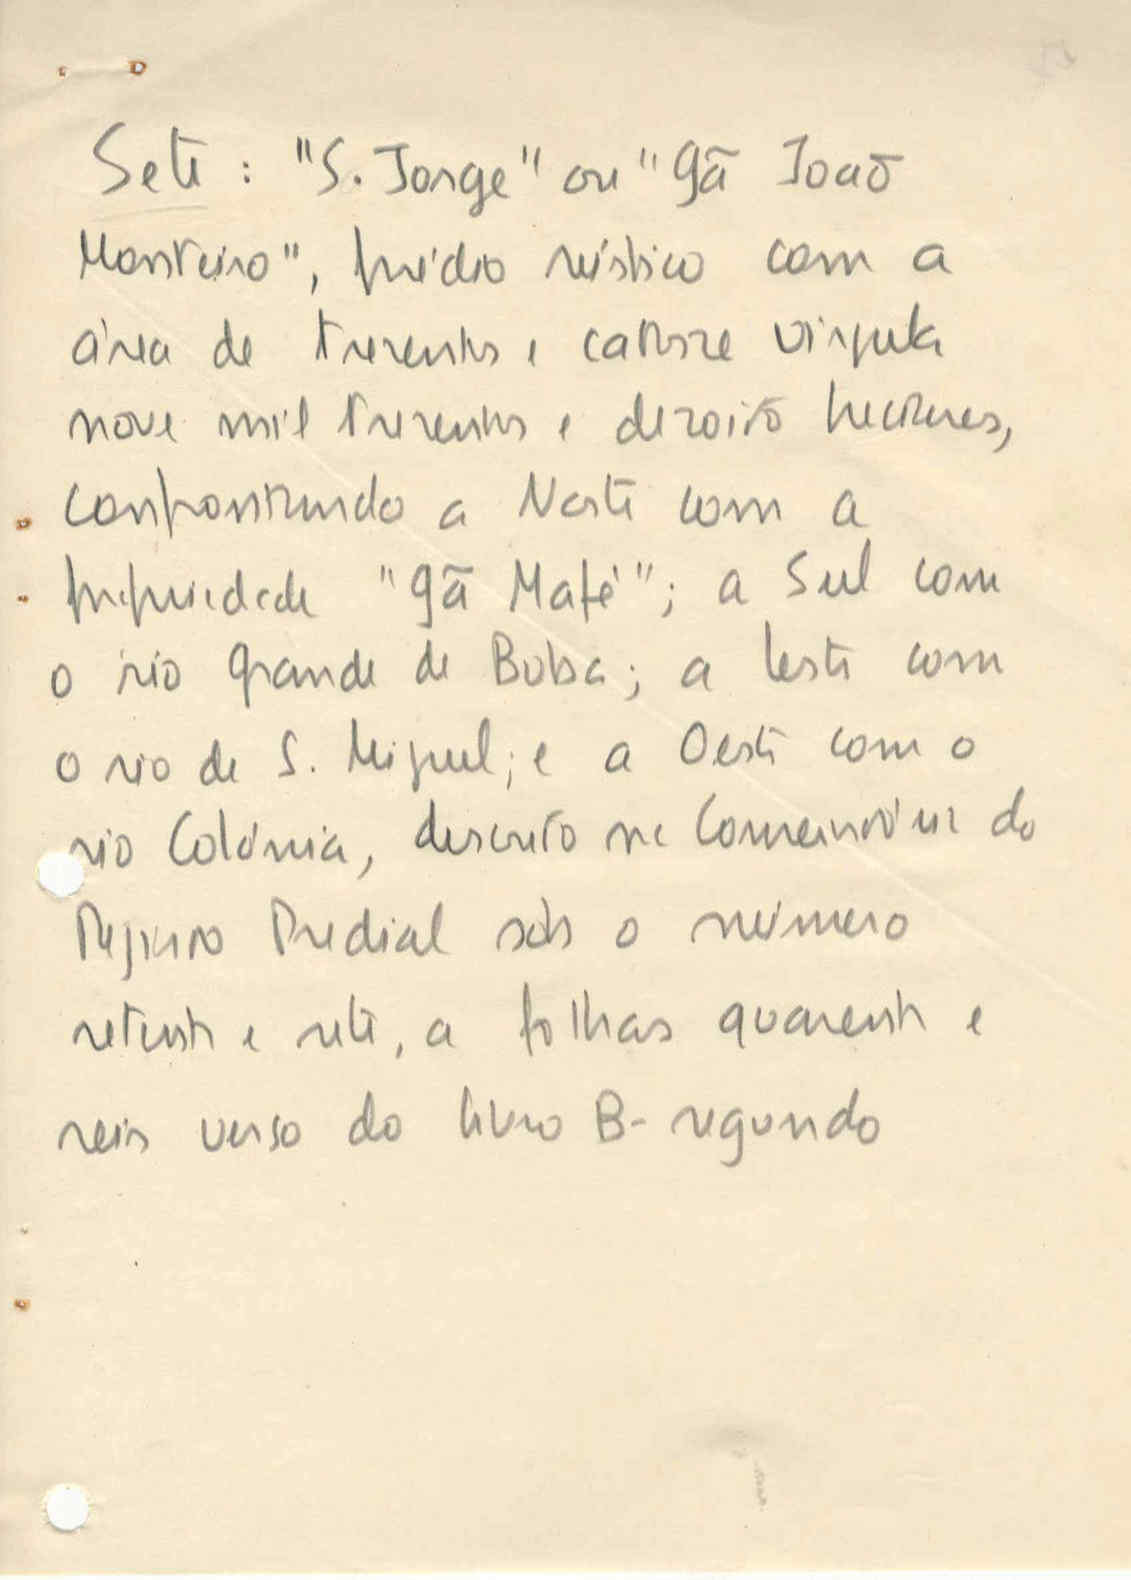 Sete : "S. Jorge" ou "Gã João
Monteiro", prédio rústico com a
área de trezentos e catorze vírgula
nove mil trezentos e dezoito hectares,
confrontando a Norte com a
propriedade "Gã Mafé"; a Sul com
o rio Grande de Bolola; a leste com
o rio de S. Miguel; e a Oeste com o
rio Colónia, descrito na Conservatória do
Registo Predial sob o número
setenta e sete, a folhas quarenta e
seis verso do livro B-segundo